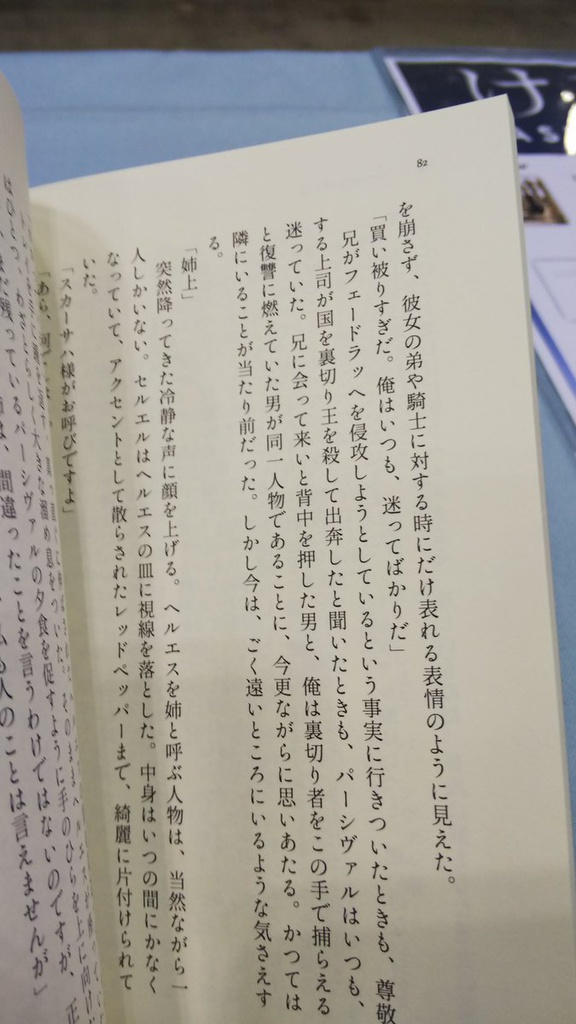 け
82
を崩さず、彼女の弟や騎士に対する時にだけ表れる表情のように見えた。
「買い被りすぎだ。俺はいつも、迷ってばかりだ」
兄がフェードラッヘを侵攻しようとしているという事実に行きついたときも、尊敬
する上司が国を裏切り王を殺して出奔したと聞いたときも、パーシヴァルはいつも、
迷っていた。兄に会って来いと背中を押した男と、俺は裏切り者をこの手で捕らえる
と復讐に燃えていた男が同一人物であることに、今更ながらに思いあたる。かつては
隣にいることが当たり前だった。しかし今は、ごく遠いところにいるような気さえす
る。
「姉上」
突然降ってきた冷静な声に顔を上げる。ヘルエスを姉と呼ぶ人物は、当然ながら一
人しかいない。セルエルはヘルエスの皿に視線を落とした。中身はいつの間にかなく
なっていて、アクセントとして散らされたレッドペッパーまで、綺麗に片付けられて
いた。
「スカーサハ様がお呼びですよ」
「あら、何
大きな溜め息をついた。
残っているパーシヴァルの夕食を促すように手のひらを上に向け
間違ったことを言うわけではないのですが、正
人のことは言えませんが」